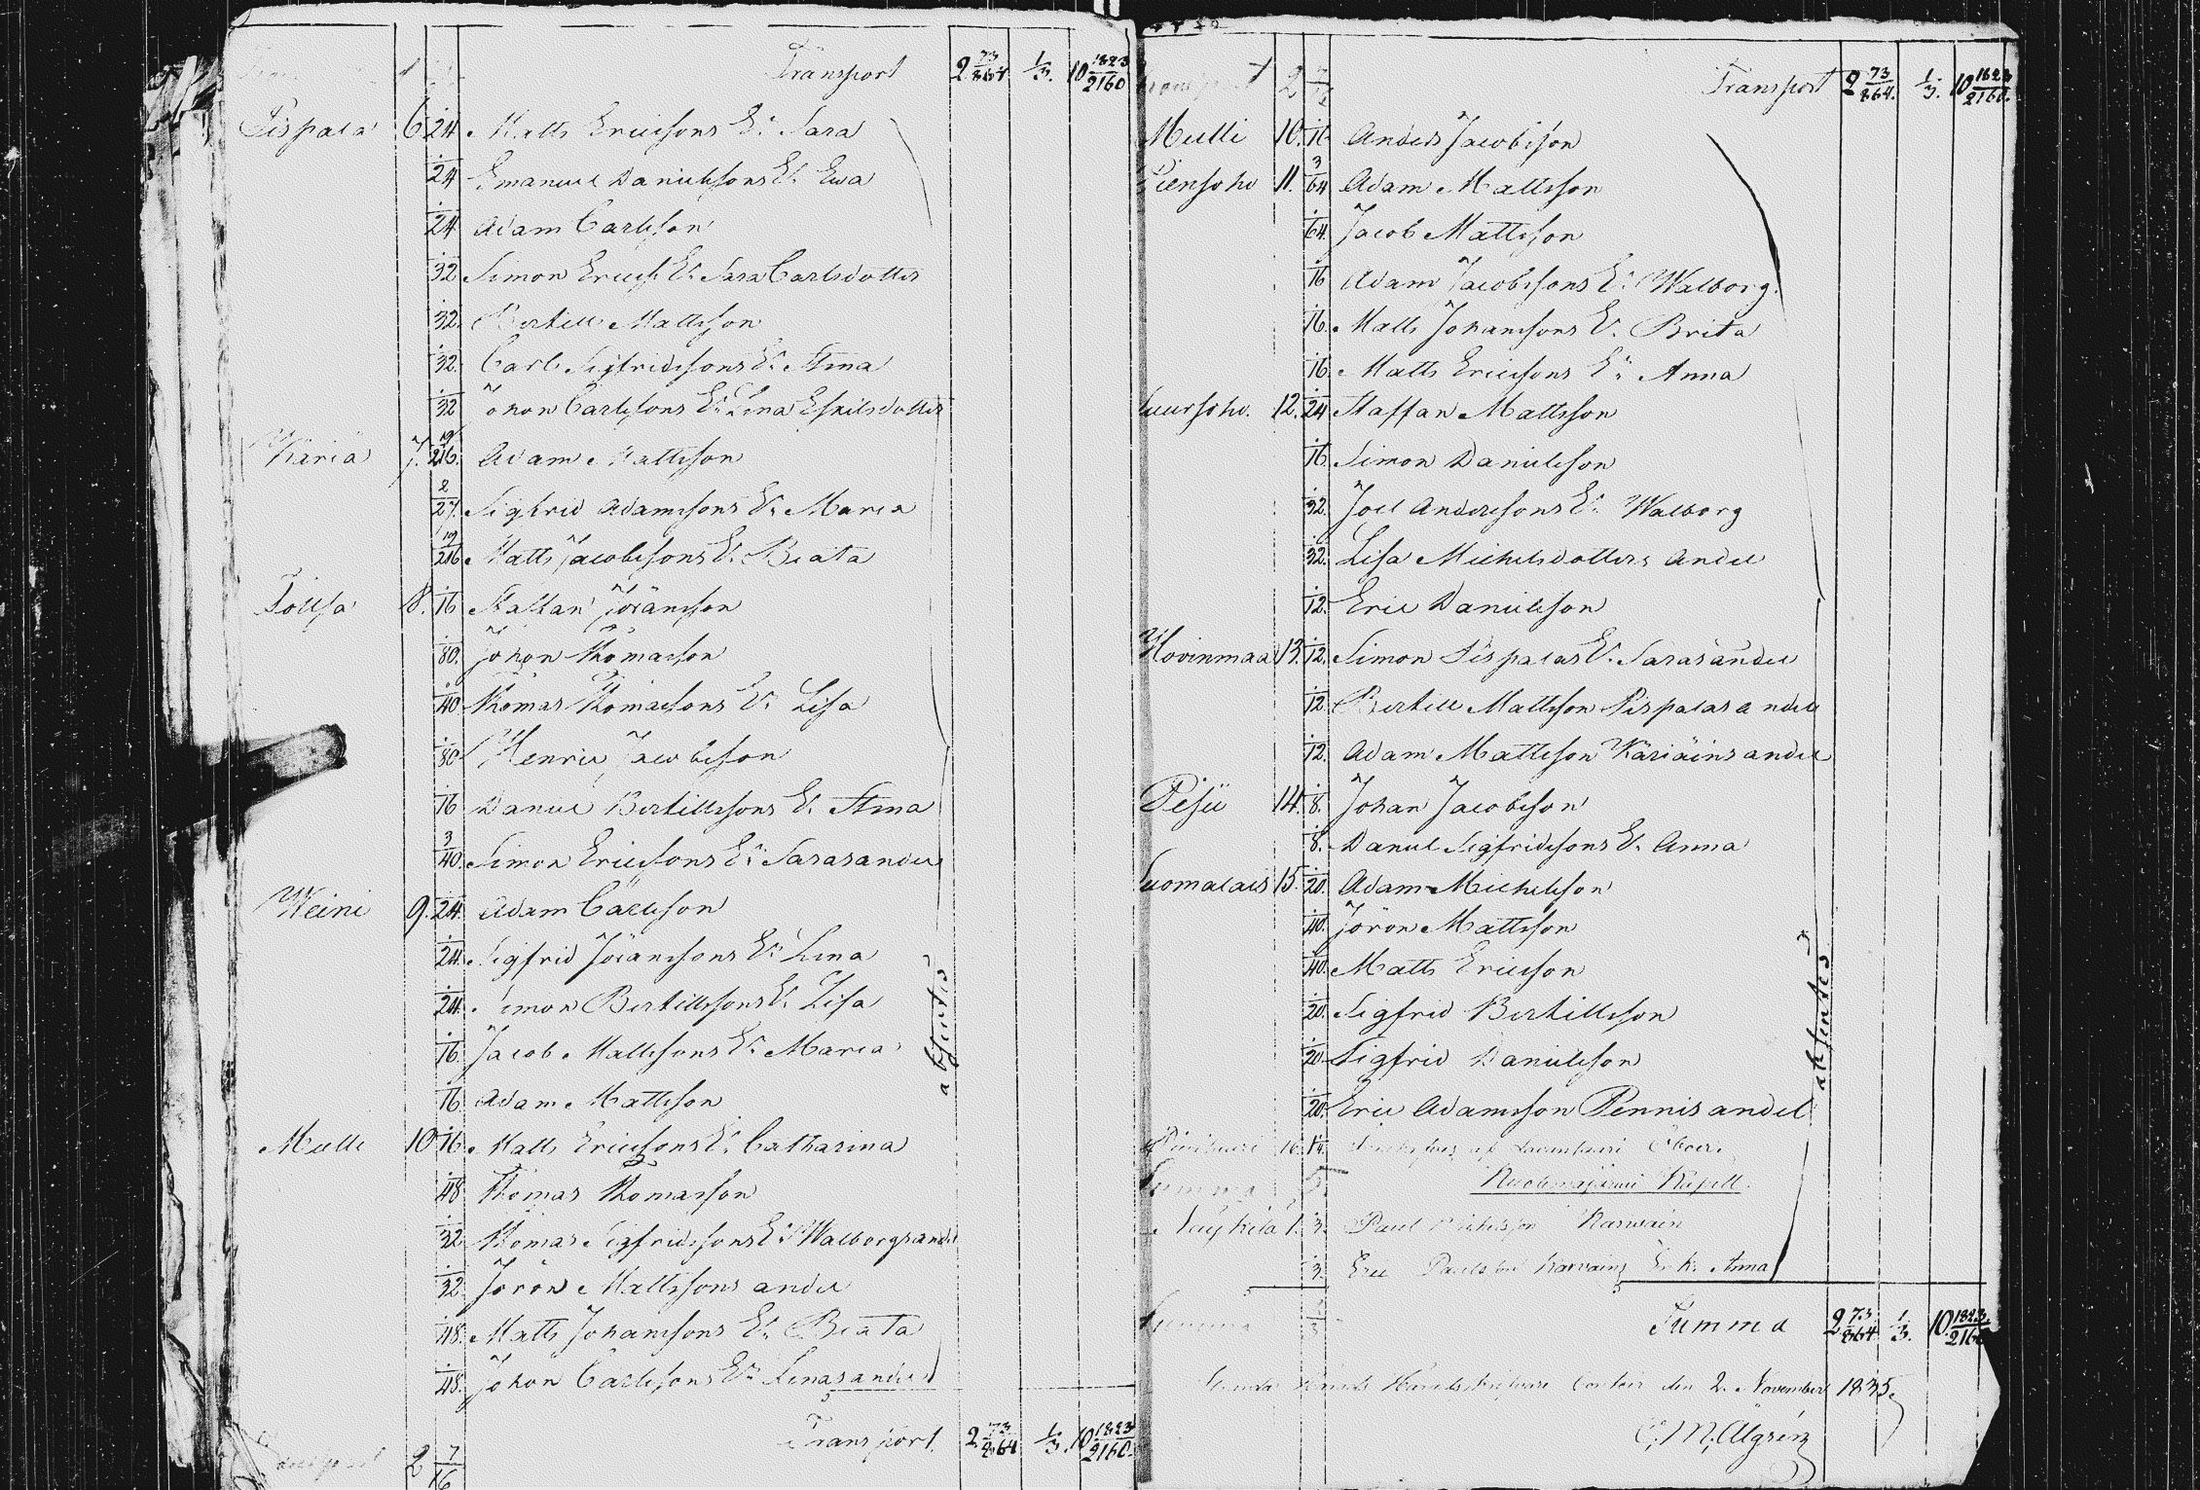 Transport 2 73/864. 1/3. 10 1823/2160
Pispala 6. 1/24 Matts Ericssons E: Sara
1/24 Emanuel Danielssons E: Ewa
1/24 Adam Carlsson
1/32 Simon Ericss. E: Sara Carlsdotter
1/32. Bertill Mattsson
1/32. Carl Sigfridssons E: Stina
1/32 Johan Carlssons E: Lena Eskilsdotter
Käriä 7. 19/216. Adam Mattsson
2/27. Sigfrid Adamssons E: Maria
19/216 Matts Jacobssons E: Beata
8. 1/16 Staffan Jöransson
1/80. Johan Thomasson
1/40 Thomas Thomassons E: Lisa
1/80 Henric Jacobsson
1/16 Daniel Bertillssons E: Stina
3/40. Simon Ericssons E: Saras andel
Weini 9. 1/24. Adam Carlsson
1/24. Sigfrid Jöranssons E: Lena
1/24. Simon Bertillssons E: Lisa
1/16. Jacob Mattssons E: Maria
1/16. Adam Mattsson
Mulli 10 1/16. Matts Ericssons E: Catharina
1/48 Thomas Thomasson
1/32 Thomas Sigfridssons E: Walborgs andel
1/32 Jörön Mattssons andel
1/48. Matts Johanssons E: Beata
1/48. Johan Carlssons E: Lenas andel
absentes
Transport 2 7/16 Transport. 2 73/864 1/3. 10 1823/2160.
Transport 2 7/16 Transport 2 73/864. 1/3. 10 1823/2160.
Mulli 10. 1/16 Anders Jacobsson
11. 3/64 Adam Mattsson
1/64. Jacob Mattsson
1/16 Adam Jacobssons E: Walborg.
1/16. Matts Johanssons E: Brita
1/16. Matts Ericssons E: Anna
12. 1/24 Staffan Mattsson
1/16 Simon Danielsson
1/32. Joel Anderssons E: Walborg
1/32. Lisa Michelsdotters andel
1/12. Eric Danielsson
Hovinmaa 13. 1/12. Simon Pispalas E: Saras andel
1/12. Bertill Mattsson Pispalas andel
1/12. Adam Mattsson Käriäins andel
14. 1/8. Johan Jacobsson
1/8. Daniel Sigfridssons E: Anna
Suomalais 15. 1/20. Adam Michelsson
1/40. Jörön Mattsson
1/40. Matts Ericsson
1/20. Sigfrid Bertillsson
1/20 Sigfrid Danielsson
1/20. Eric Adamsson Pennis andel
absentes
16. 1/4
Summa Kapell
1. 1/3. Paul
1/3. Eric Anna
Summa Summa 2 73/864 1/3. 10. 1823/2160
Contoir den 2. November 1835.